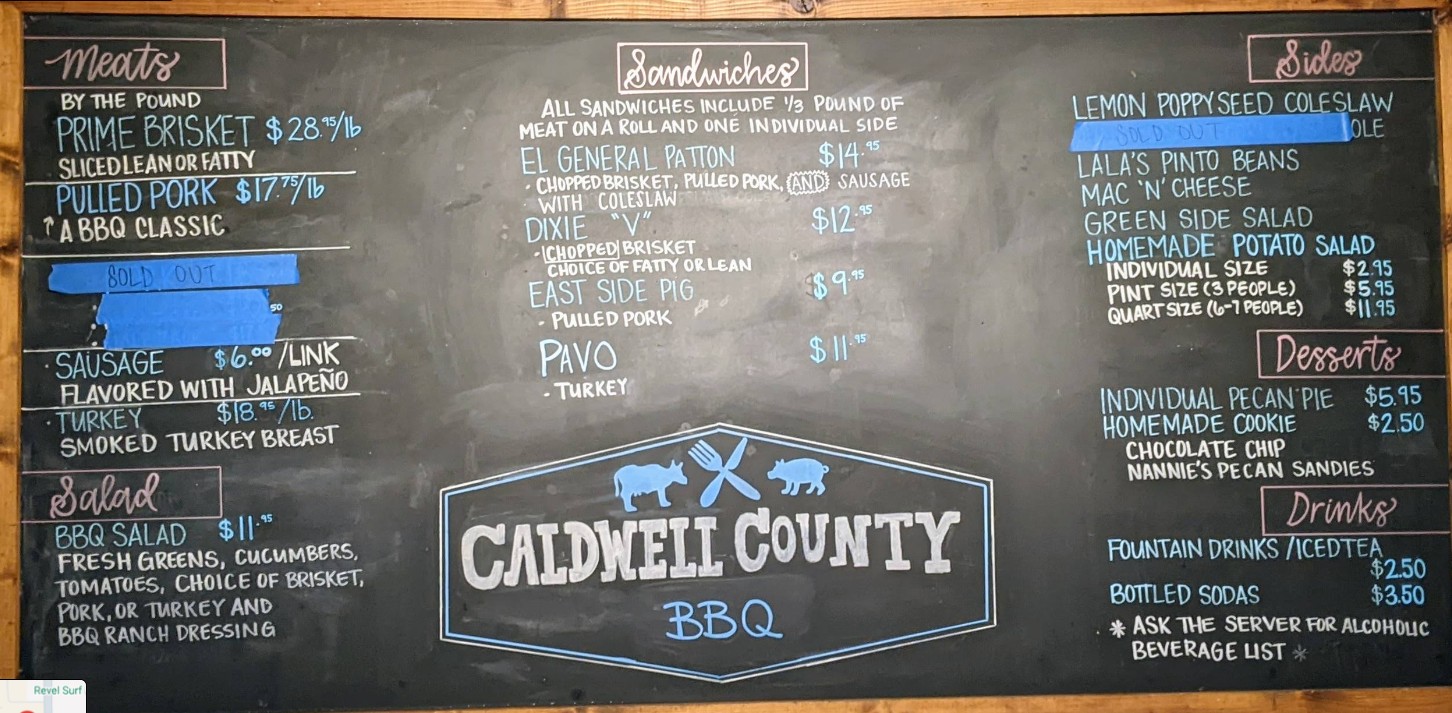 Meats
BY THE POUND
PRIME BRISKET $28.95/lb
SLICED LEAN OR FATTY
PULLED PORK $17.75/lb
↑ A BBQ CLASSIC
SOLD OUT
50
· SAUSAGE $6.00/LINK
FLAVORED WITH JALAPEÑO
· TURKEY $18.95/lb.
SMOKED TURKEY BREAST
Salad
BBQ SALAD $11.95
FRESH GREENS, CUCUMBERS,
TOMATOES, CHOICE OF BRISKET,
PORK, OR TURKEY AND
BBQ RANCH DRESSING
Sandwiches
ALL SANDWICHES INCLUDE 1/3 POUND OF
MEAT ON A ROLL AND ONE INDIVIDUAL SIDE
EL GENERAL PATTON $14.95
· CHOPPED BRISKET, PULLED PORK, AND SAUSAGE
WITH COLESLAW
DIXIE "V" $12.95
· CHOPPED BRISKET
CHOICE OF FATTY OR LEAN
EAST SIDE PIG $9.95
· PULLED PORK
PAVO $11.95
· TURKEY
CALDWELL COUNTY
BBQ
Sides
LEMON POPPYSEED COLESLAW
SOLD OUT OLE
LALA'S PINTO BEANS
MAC 'N' CHEESE
GREEN SIDE SALAD
HOMEMADE POTATO SALAD
INDIVIDUAL SIZE $2.95
PINT SIZE (3 PEOPLE) $5.95
QUART SIZE (6-7 PEOPLE) $11.95
Desserts
INDIVIDUAL PECAN PIE $5.95
HOMEMADE COOKIE $2.50
CHOCOLATE CHIP
NANNIE'S PECAN SANDIES
Drinks
FOUNTAIN DRINKS /ICED TEA
$2.50
BOTTLED SODAS $3.50
* ASK THE SERVER FOR ALCOHOLIC
BEVERAGE LIST *
Revel Surf